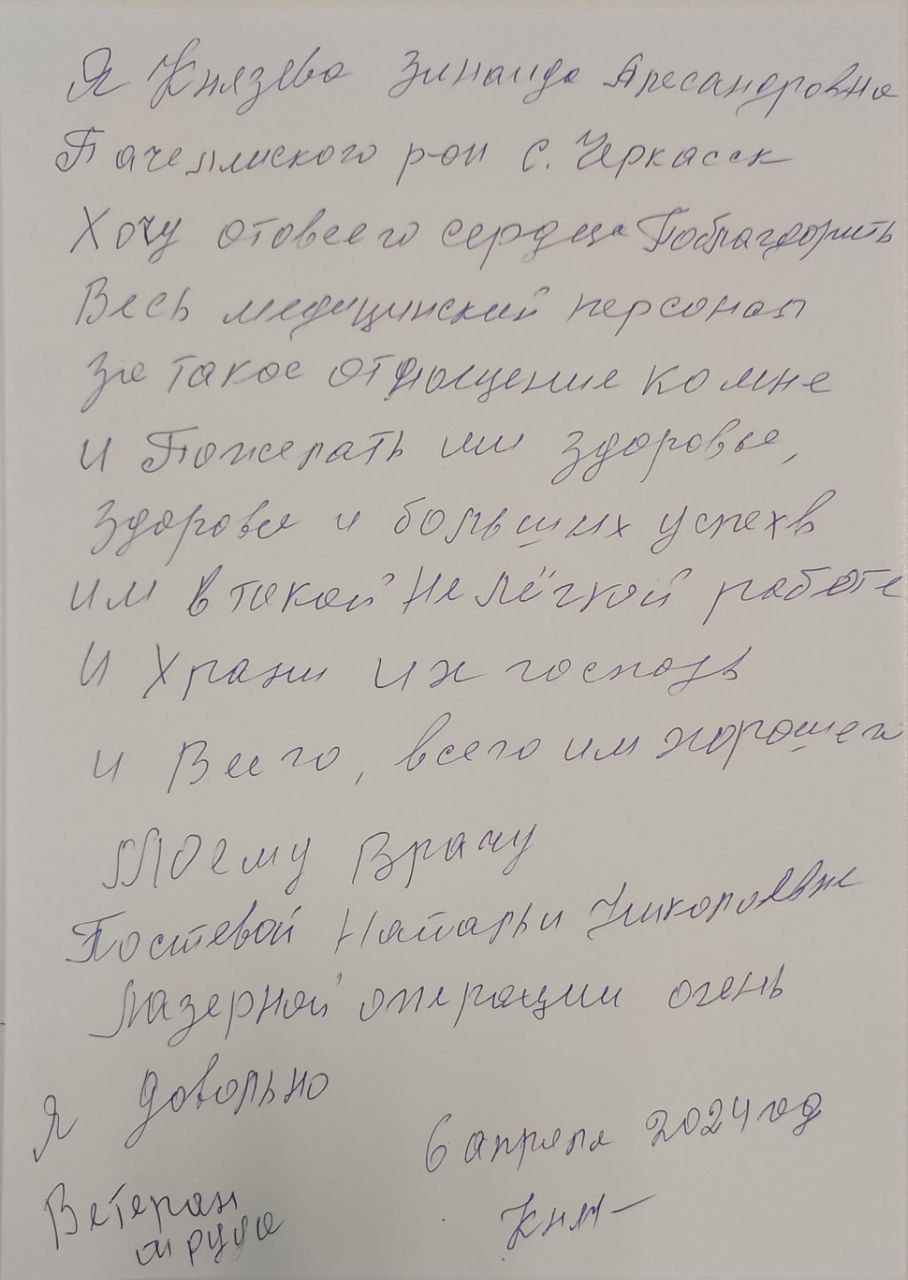 Я Князева Зинаида Алесандровна
Пачелмского р-он с. Черкасск
Хочу отовсего сердца Поблагдорить
Весь медицинский персонал
За такое отнощение ко мне
и Пожелать им здоровье,
здоровье и больших успехв
им в такой не лёгкой работе
И Храни их господь
и Всего, всего им хорошего
Моему Врачу
Постевой Натальи Николаевне
Лазерной операции очень
Я довольно
6 апреля 2024 год
Ветеран
труда